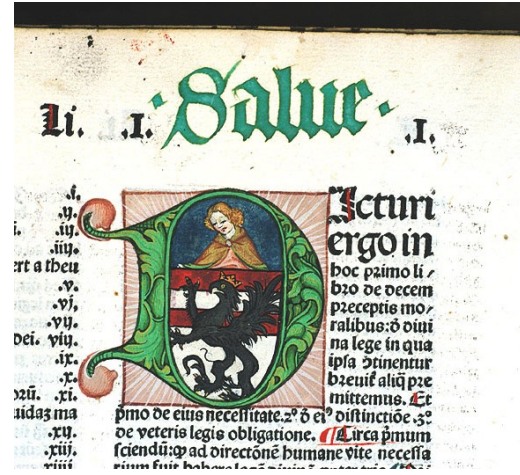 Li. .I. Salue .I.
.i.
.ij.
i. .iij.
.iiij.
ert a theu
.v.
.vj.
.vij.
dei. viij.
.ix.
.x.
orū. .xi.
uidaz ma
.xij.
.xiij.
.xiiij
Dicturi
ergo in
hoc primo li⸗
bro de decem
preceptis mo⸗
ralibus: ꝺ diui
na lege in qua
ipsa ↄtinentur
breuiť aliq̄ pre
mittemus. Et
pͥmo de eius necessitate. 2° ꝺ eiꝰ distinctiōe .3°.
de veteris legis obligatione. Circa pͥmum
sciendū: ꝙ ad directōnē humane vite necessa